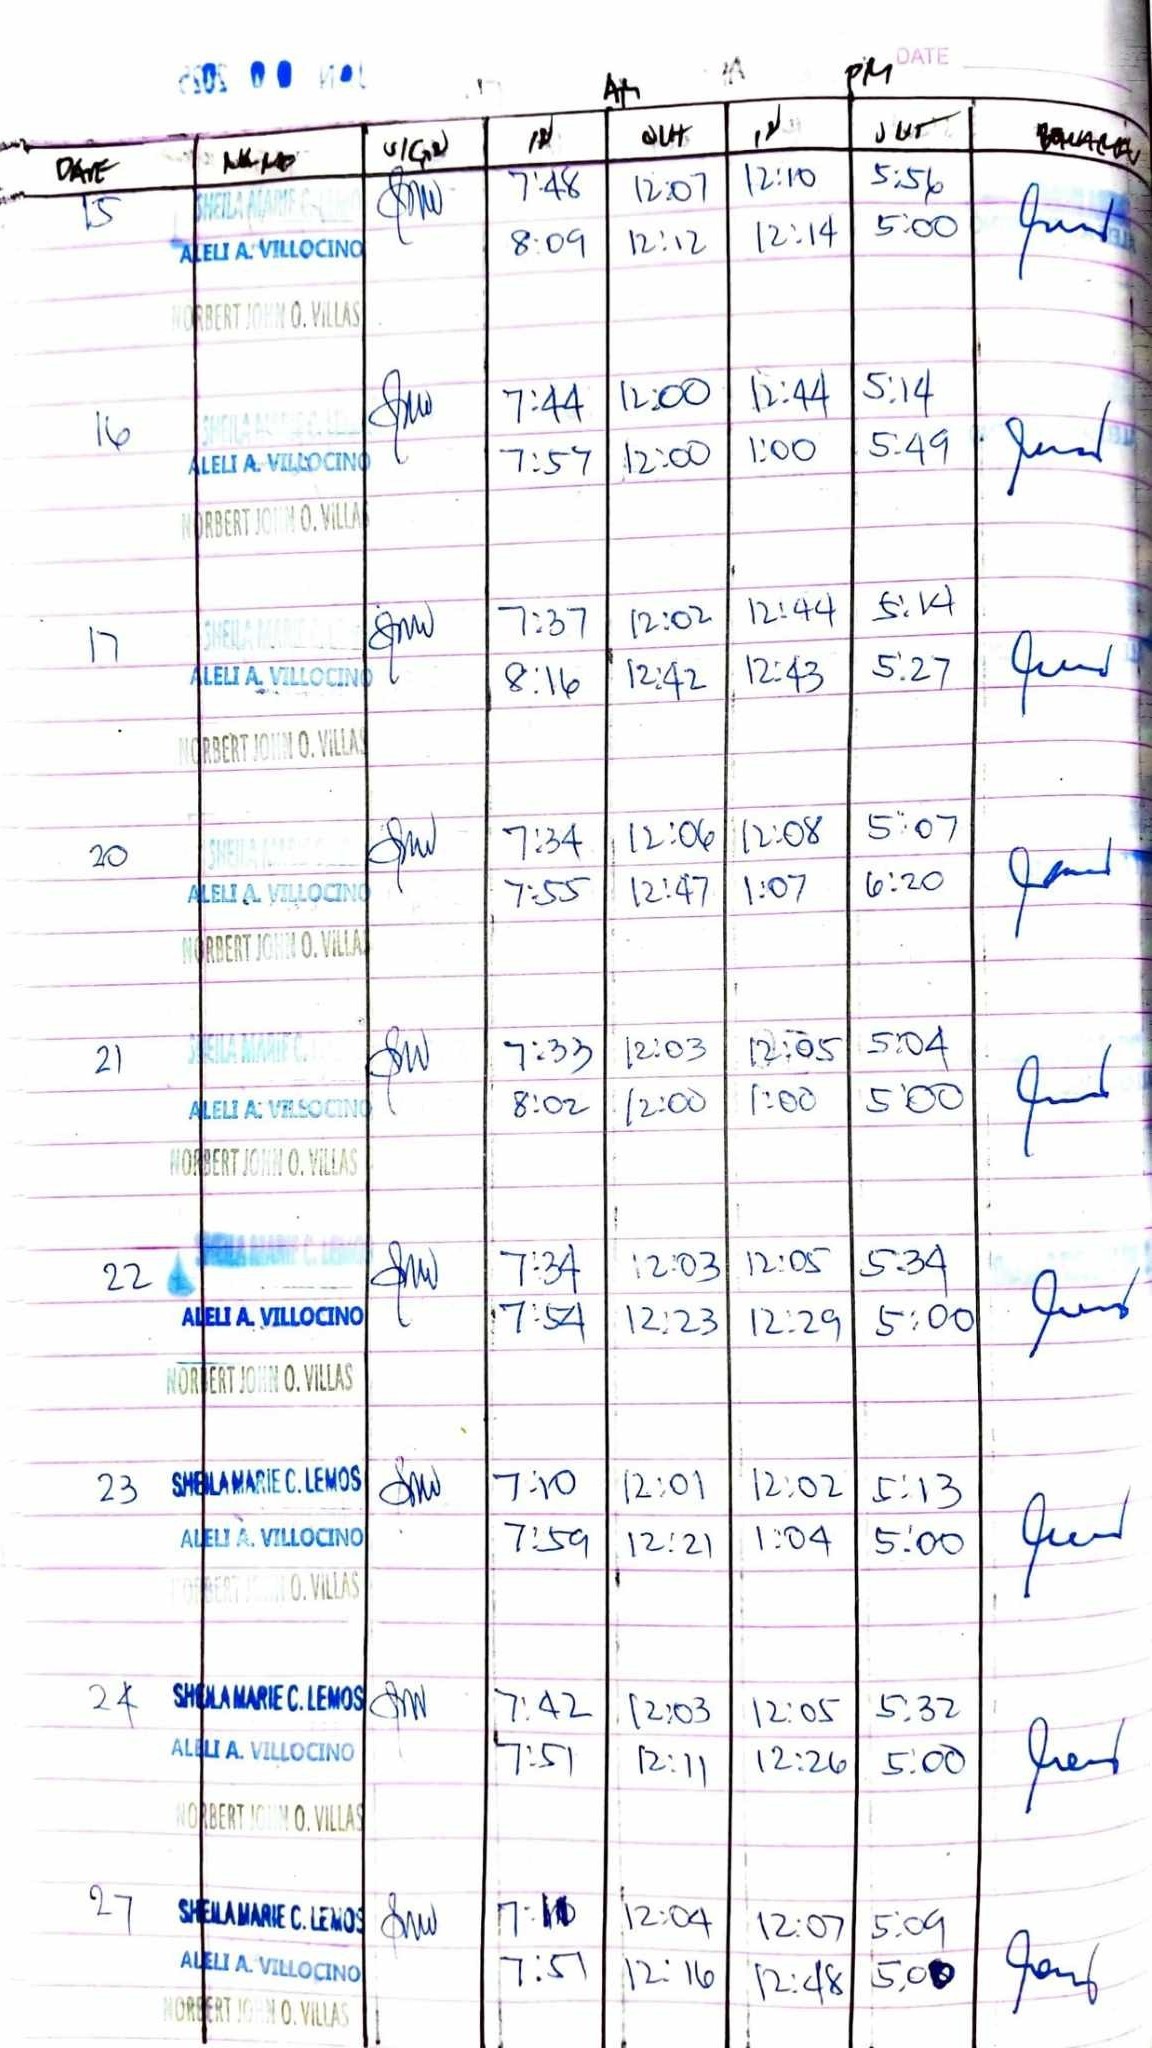 DATE
AM PM
DATE NAME SIGN IN OUT IN OUT REMARKS
15 SHEILA MARIE C. LEMOS 7:48 12:07 12:10 5:56
ALELI A. VILLOCINO 8:09 12:12 12:14 5:00
NORBERT JOHN O. VILLAS
16 SHEILA MARIE C. LEMOS 7:44 12:00 12:44 5:14
ALELI A. VILLOCINO 7:57 12:00 1:00 5:49
NORBERT JOHN O. VILLAS
17 SHEILA MARIE C. 7:37 12:02 12:44 5:14
ALELI A. VILLOCINO 8:16 12:42 12:43 5:27
NORBERT JOHN O. VILLAS
20 SHEILA MARIE C. 7:34 12:06 12:08 5:07
ALELI A. VILLOCINO 7:55 12:47 1:07 6:20
NORBERT JOHN O. VILLAS
21 SHEILA MARIE C. 7:33 12:03 12:05 5:04
ALELI A. VILLOCINO 8:02 12:00 1:00 5:00
NORBERT JOHN O. VILLAS
22 SHEILA MARIE C. LEMOS 7:34 12:03 12:05 5:34
ALELI A. VILLOCINO 7:54 12:23 12:29 5:00
NORBERT JOHN O. VILLAS
23 SHEILA MARIE C. LEMOS 7:10 12:01 12:02 5:13
ALELI A. VILLOCINO 7:59 12:21 1:04 5:00
NORBERT JOHN O. VILLAS
24 SHEILA MARIE C. LEMOS 7:42 12:03 12:05 5:32
ALELI A. VILLOCINO 7:51 12:11 12:26 5:00
NORBERT JOHN O. VILLAS
27 SHEILA MARIE C. LEMOS 12:04 12:07 5:09
ALELI A. VILLOCINO 7:51 12:16 12:48 5:00
NORBERT JOHN O. VILLAS